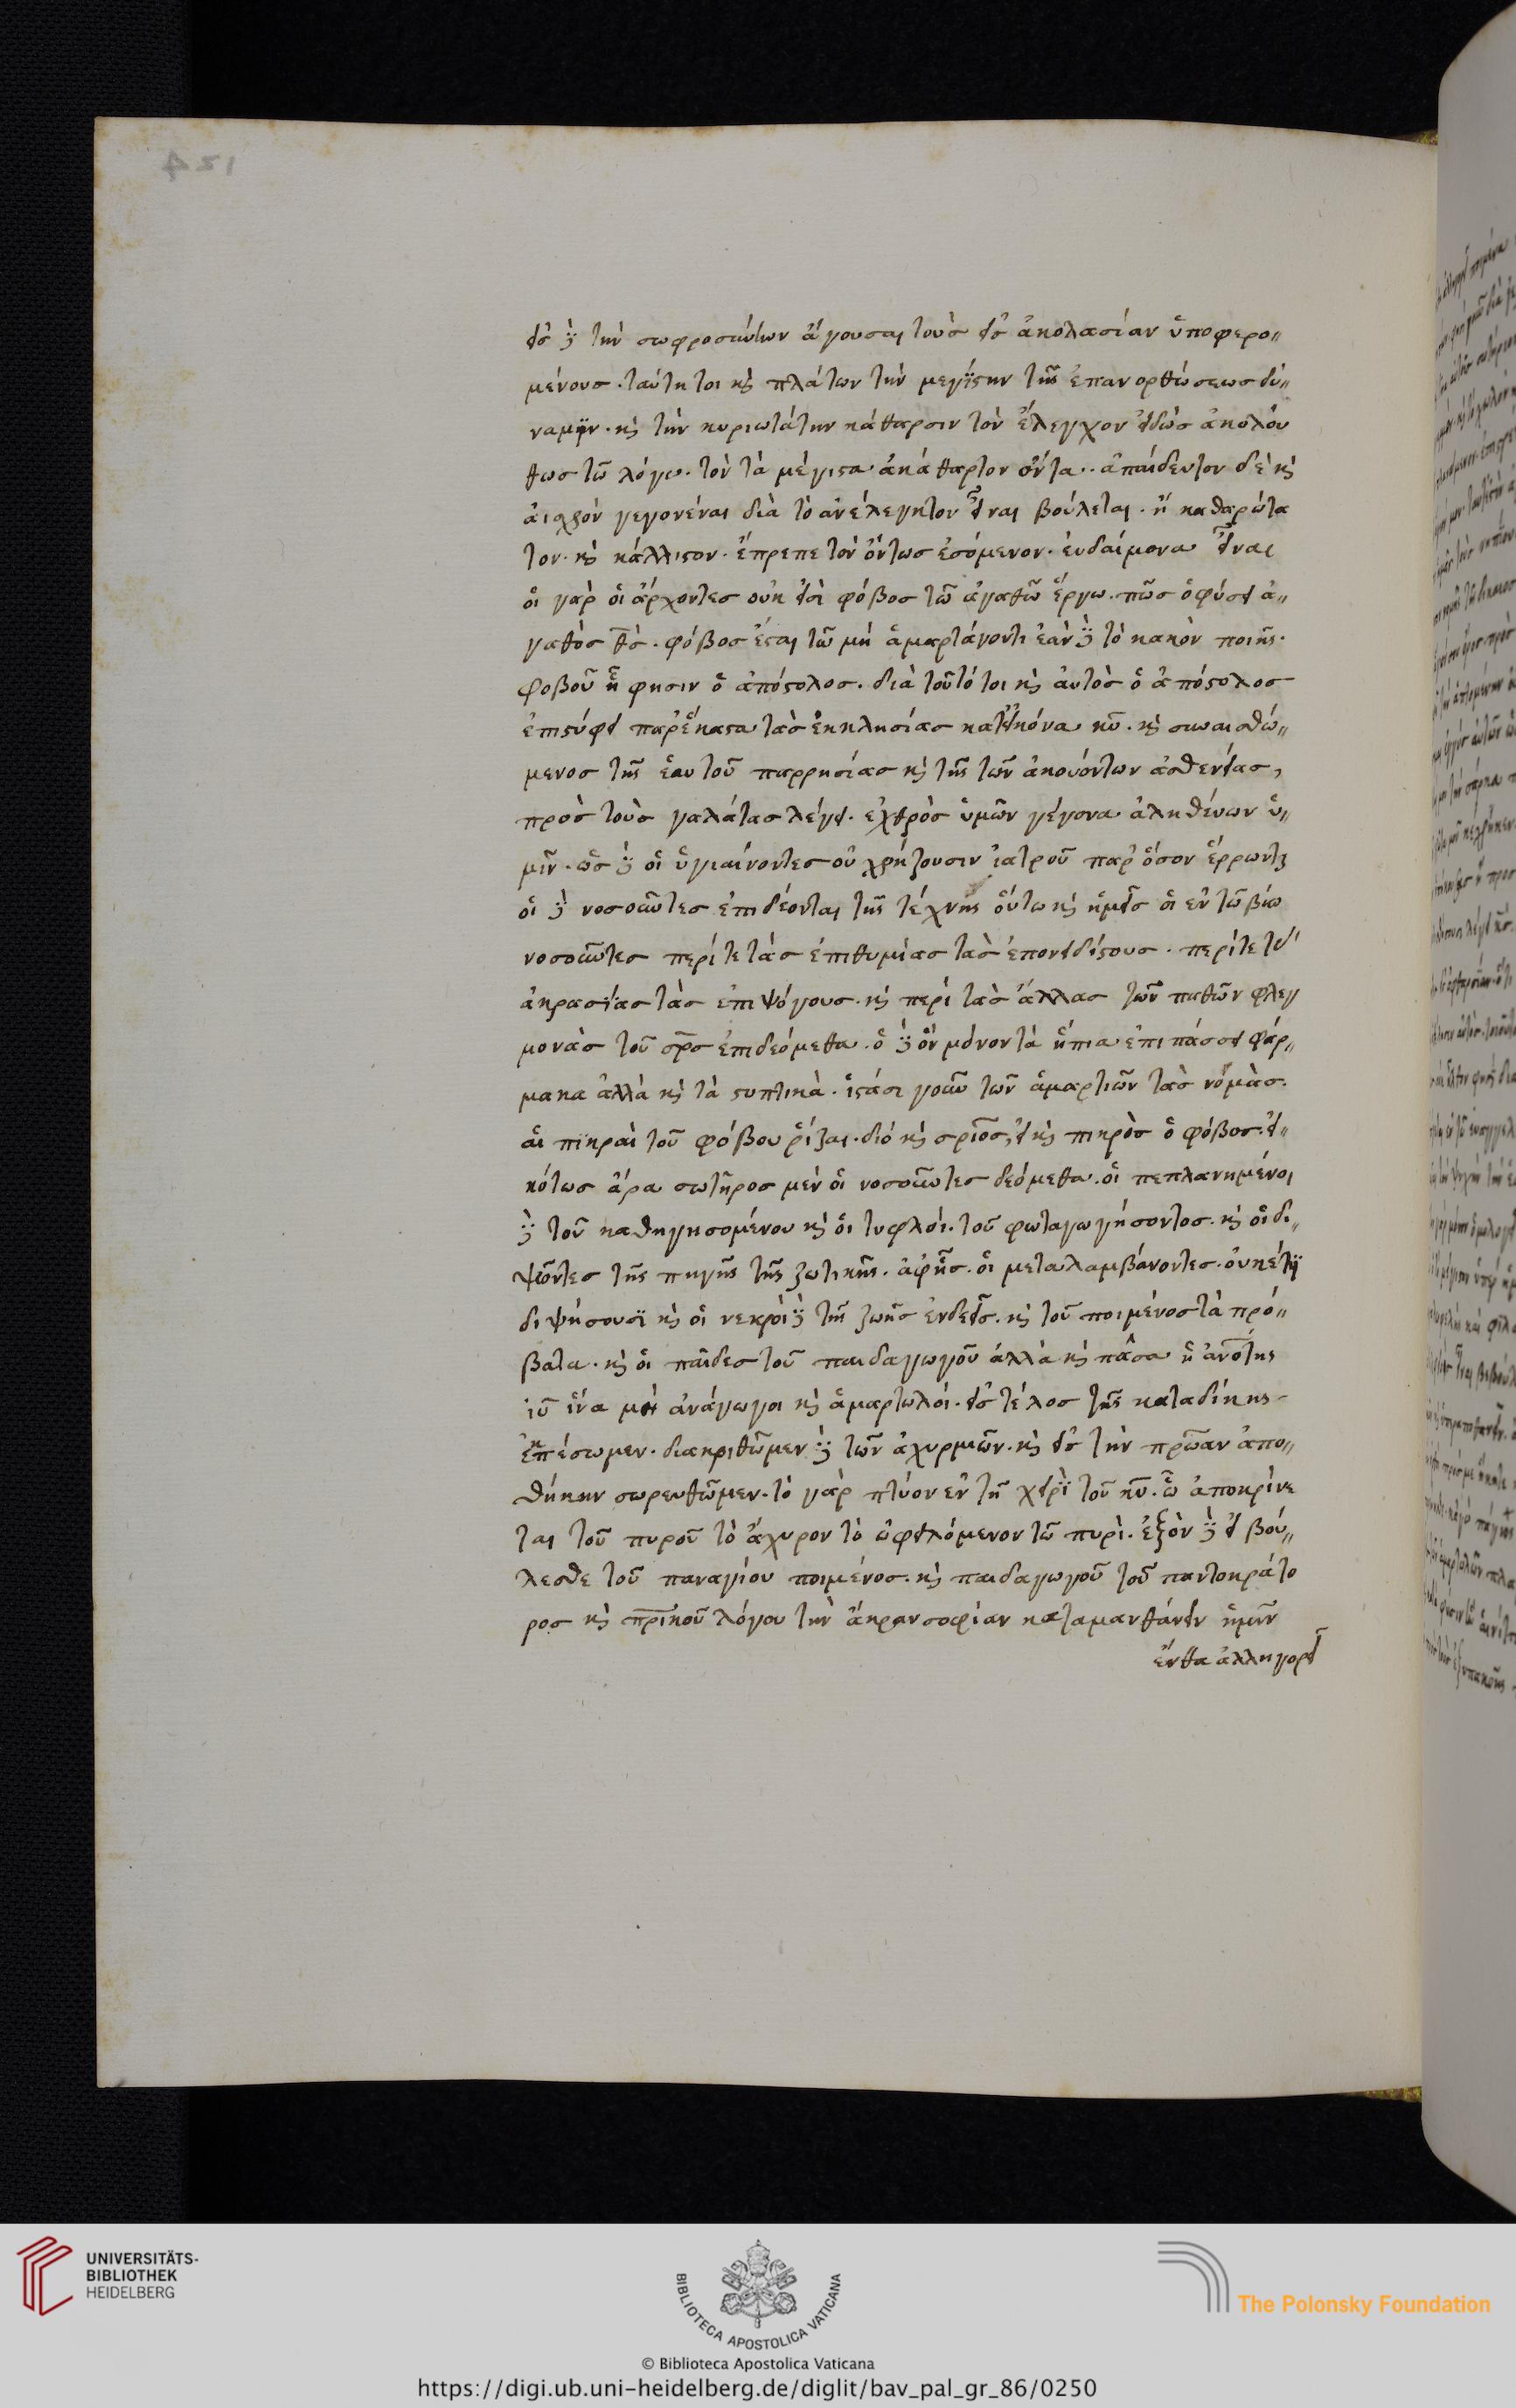 εἰς δὲ τὴν σωφροσύνην ἄγουσαι τοὺς εἰς ἀκολασίαν ὑποφερο〃
μένους. ταύτη τοι καὶ πλάτων τὴν μεγίστην τῆς ἐπανορθώσεως δύ〃
ναμιν. καὶ τὴν κυριωτάτην κάθαρσιν τὸν ἔλεγχον εἰδὼς ἀκολού
θως τῶ λόγω. τὸν τὰ μέγιστα ἀκάθαρτον ὄντα.. ἀπαίδευτον δὲ καὶ
αἰσχρὸν γεγονέναι διὰ τὸ ἀνέλεγκτον εἶναι βούλεται. ἧ καθαρώτα
τον. καὶ κάλλιστον. ἔπρεπε τὸν ὄντως ἐσόμενον. ἐυδαίμονα εἶναι
οἱ γὰρ οἱ ἄρχοντες οὐκ εἰσὶ φόβος τῶ ἀγαθῶ ἔργω. πῶς ὁ φύσει ἀ〃
γαθὸς θς. φόβος ἔσται τῶ μὴ ἁμαρτάνοντι ἐὰν δὲ τὸ κακὸν ποιῆς.
φοβοῦ ἧ φησιν ὁ ἀπόστολος. διὰ τοῦτό τοι καὶ ἀυτὸς ὁ ἀπόστολος
ἐπιστύφει παρ' ἕκαστα τὰς ἐκκλησίας κατ' εἰκόνα κυ. καὶ συναισθώ〃
μενος τῆς ἑαυτοῦ παρρησίας καὶ τῆς τῶν ἀκουόντων ἀσθενείας,
πρὸς τοὺς γαλάτας λέγει. ἐχθρὸς ὑμῶν γέγονα ἀληθέυων ὑ〃
μῖν. ὡς δὲ οἱ ὑγιαίνοντες οὐ χρήζουσιν ἰατροῦ παρ' ὅσον ἔρρωνται
οἱ δὲ νοσοῦντες ἐπιδέονται τῆς τέχνης οὕτω καὶ ἡμεῖς οἱ ἐν τῶ βίω
νοσοῦντες περί τε τὰς ἐπιθυμίας τὰς ἐπονειδίστους. περί τε τὰς
ἀκρασίας τὰς ἐπιψόγους. καὶ περὶ τὰς ἄλλας τῶν παθῶν φλεγ
μονὰς τοῦ σρς ἐπιδεόμεθα. ὁ δὲ ὀυ μόνον τὰ ἤπια ἐπιπάσσει φάρ〃
μακα ἀλλὰ καὶ τὰ στυπτικὰ. ἱστάσι γοῦν τῶν ἁμαρτιῶν τὰς νομὰς.
αἱ πικραὶ τοῦ φόβου ῥίζαι. διό καὶ σριος, εἰ καὶ πικρὸς ὁ φόβος. εἰ〃
κότως ἄρα σωτῆρος μὲν οἱ νοσοῦντες δεόμεθα. οἱ πεπλανημένοι
δὲ τοῦ καθηγησομένου καὶ οἱ τυφλόι. τοῦ φωταγωγήσοντος. καὶ οἱ δι〃
ψῶντες τῆς πηγῆς τῆς ζωτικῆς. ἀφ' ἧς. οἱ μεταλαμβάνοντες. ὀυκέτι
διψήσουσι καὶ οἱ νεκροὶ δὲ τῆς ζωῆς ἐνδεεῖς. καὶ τοῦ ποιμένος τὰ πρό〃
βατα. καὶ οἱ παῖδες τοῦ παιδαγωγοῦ ἀλλὰ καὶ πᾶσα ἡ ἀνότης
ιυ ἵνα μὴ ἀνάγωγοι καὶ ἁμαρτωλόι. εἰς τέλος τῆς καταδίκης
ἐκπέσωμεν. διακριθῶμεν δὲ τῶν ἀχυρμιῶν. καὶ εἰς τὴν πρώαν ἀπο〃
θήκην σωρευθῶμεν. τὸ γὰρ πτύον ἐν τῆ χειρὶ τοῦ κυ. ὧ ἀποκρίνε
ται τοῦ πυροῦ τὸ ἄχυρον τὸ ὀφειλόμενον τῶ πυρὶ. ἐξὸν δὲ εἰ βού〃
λεσθε τοῦ παναγίου ποιμένος. καὶ παιδαγωγοῦ τοῦ παντοκράτο
ρος καὶ πρικοῦ λόγου τὴν ἄκραν σοφίαν καταμανθάνειν ἡμῖν
ἔνθα ἀλληγορεῖ
UNIVERSITÄTS-
BIBLIOTHEK
HEIDELBERG
BIBLIOTECA APOSTOLICA VATICANA
The Polonsky Foundation
© Biblioteca Apostolica Vaticana
https://digi.ub.uni-heidelberg.de/diglit/bav_pal_gr_86/0250